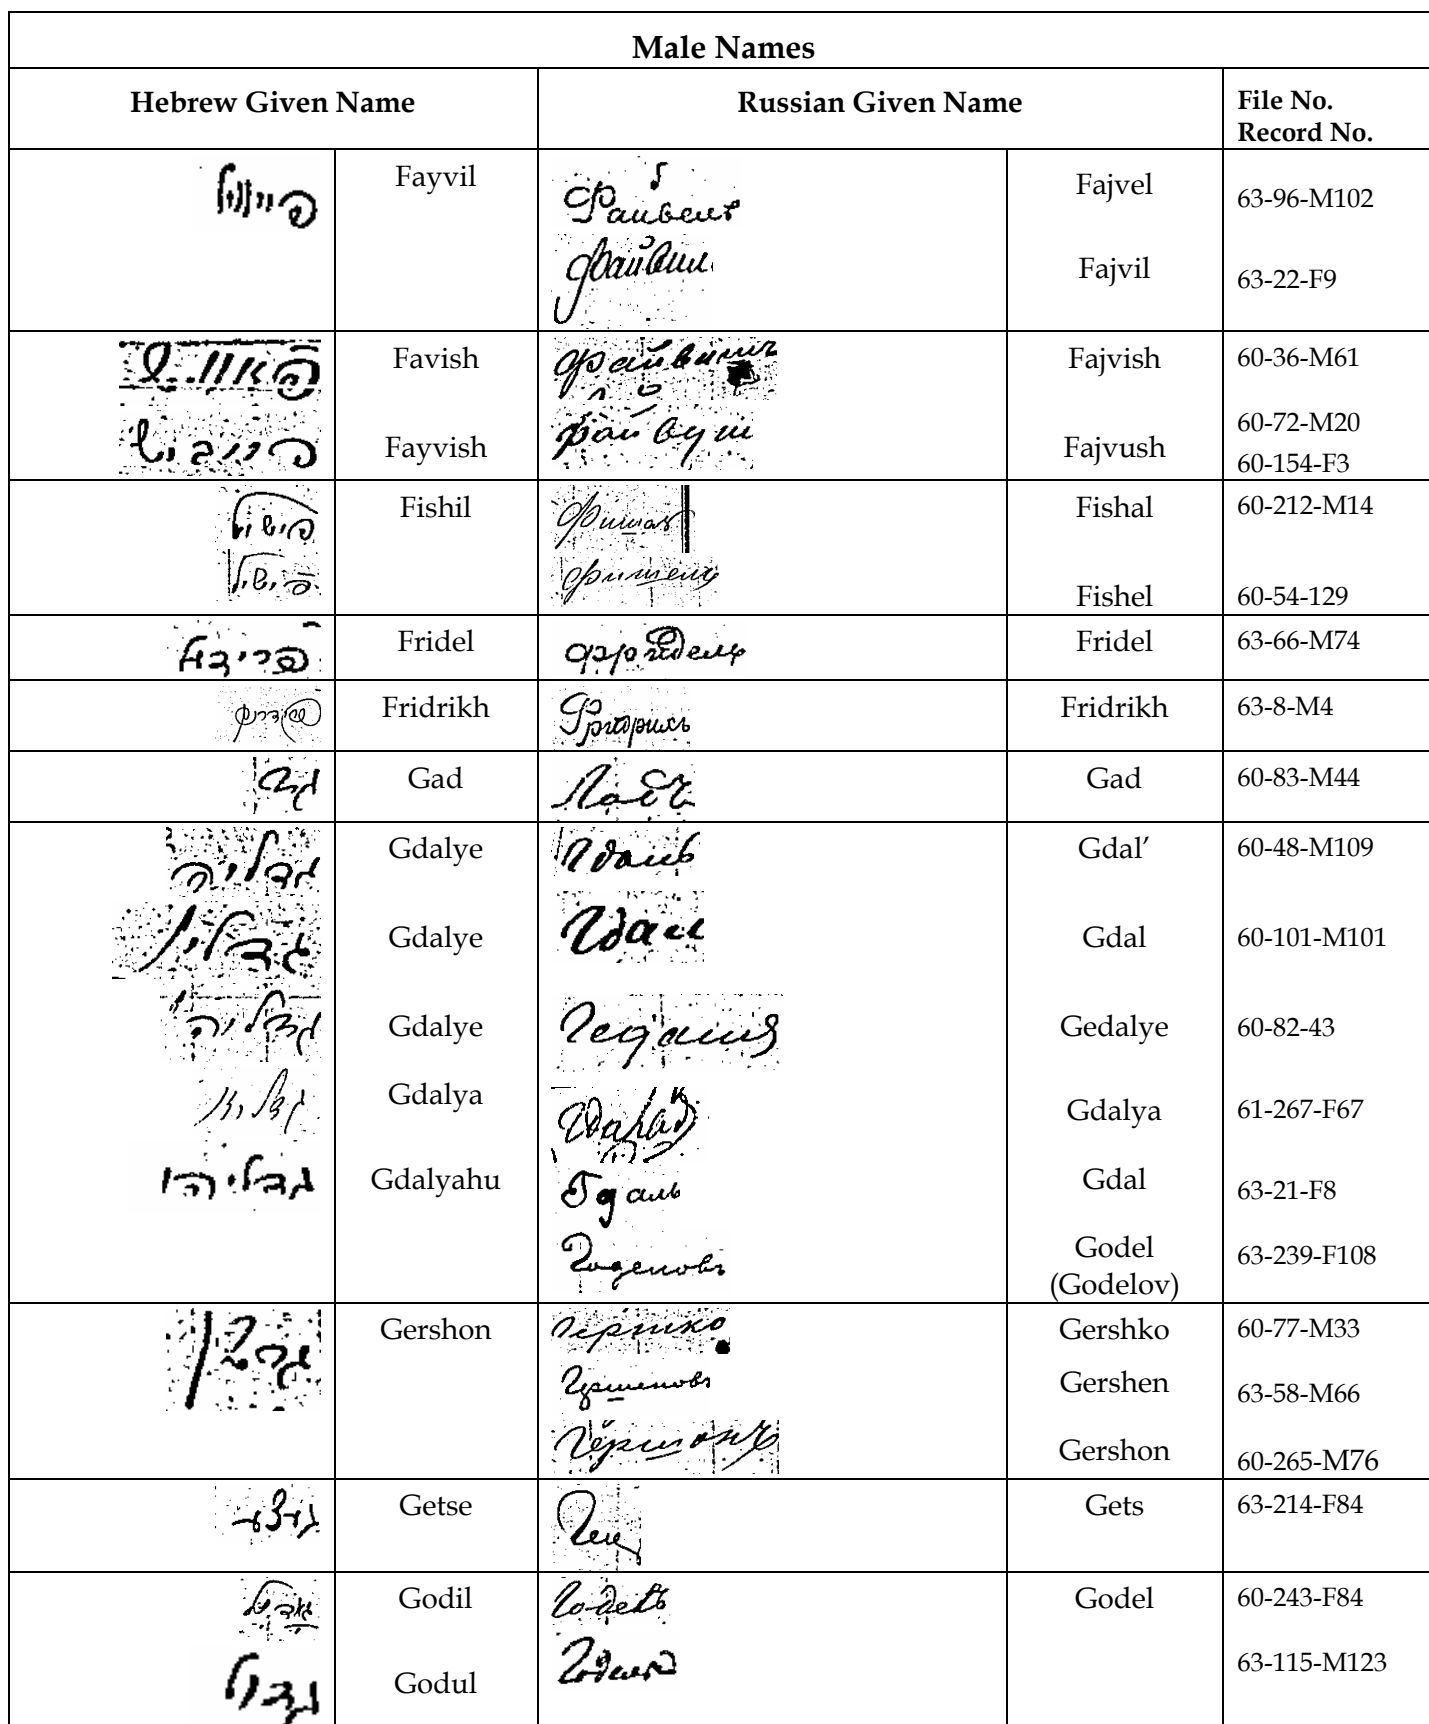 Male Names
Hebrew Given Name Russian Given Name File No. Record No.
Fayvil Файвель Fajvel 63-96-M102
Файвил Fajvil 63-22-F9
Favish Файвиш Fajvish 60-36-M61
פייביש Fayvish Файвуш Fajvush 60-72-M20
60-154-F3
פישיל Fishil Fishal 60-212-M14
פישיל Фишель Fishel 60-54-129
Fridel Fridel 63-66-M74
Fridrikh Fridrikh 63-8-M4
גד Gad Gad 60-83-M44
גדליה Gdalye Гдаль Gdal’ 60-48-M109
Gdalye Гдал Gdal 60-101-M101
גדליה Gdalye Gedalye 60-82-43
Gdalya Gdalya 61-267-F67
גדליהו Gdalyahu Гдаль Gdal 63-21-F8
Годеловъ Godel (Godelov) 63-239-F108
Gershon Гершко Gershko 60-77-M33
Гершеновъ Gershen 63-58-M66
Гершонъ Gershon 60-265-M76
Getse Гец Gets 63-214-F84
Godil Годель Godel 60-243-F84
גדול Godul 63-115-M123